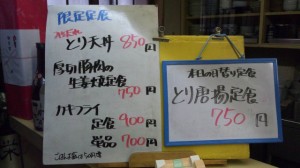 限定定食
とり天丼 850円
厚切豚肉の
生姜焼定食
750円
カキフライ
定食 900円
単品 700円
本日の日替り定食
とり唐揚定食
750円